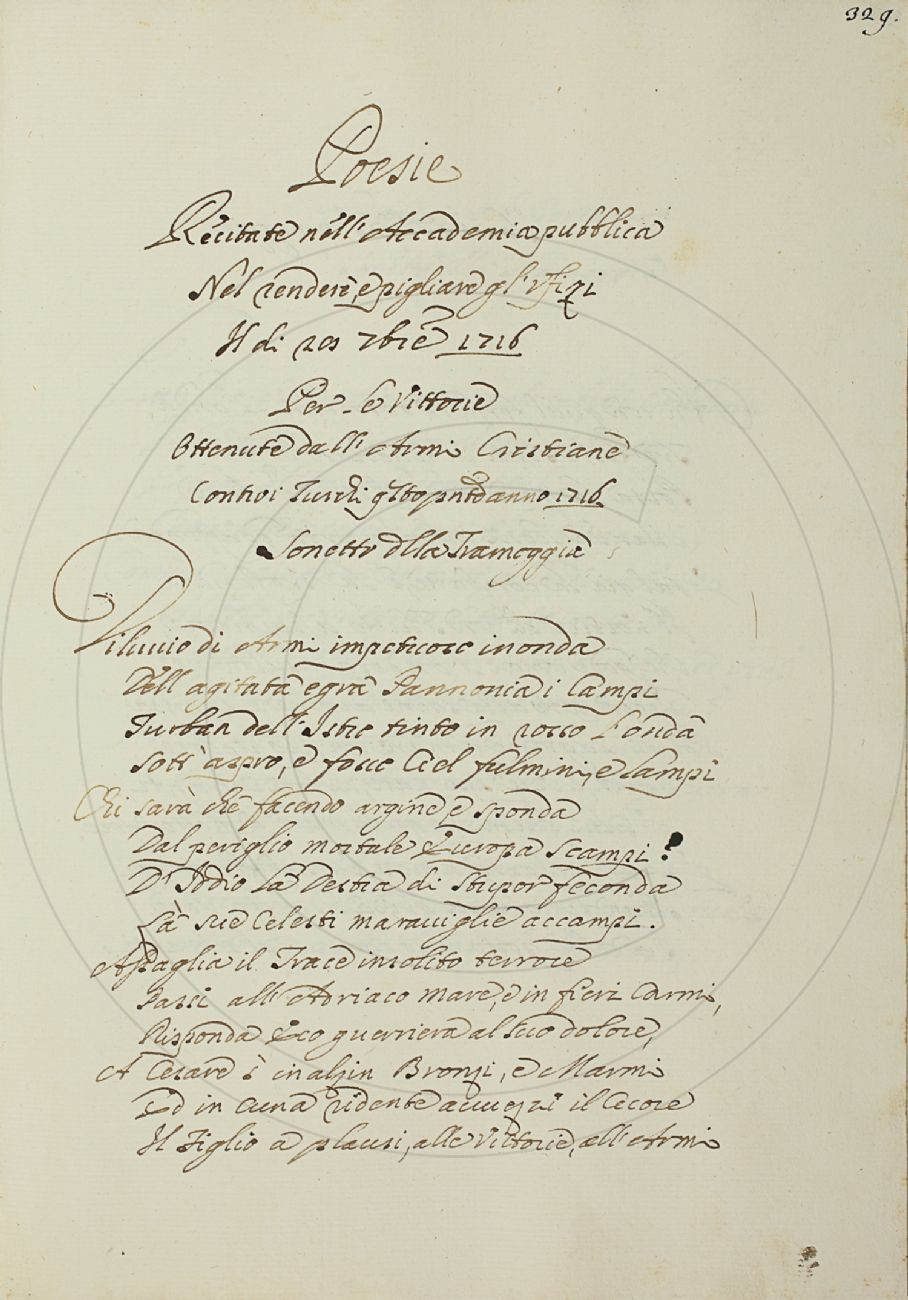 329.
Poesie
Recitate nell' Accademia pubblica
Nel rendere, e pigliare gl' ufizi
Il di 20 7bre 1716
Per le Vittorie
Ottenute dall' Armi Cristiane
Contro i Turchi anno 1716
Sonetto dlla Trameggia
Diluvio di Armi impetuose inonda
Dell' agitata egra Pannonia i Campi
Turban dell' Istro tinto in rosso l'onda
Sott' aspro, e fosco Ciel fulmini, e Lampi
Chi sarà che facendo argine, e sponda
Dal periglio mortale Europa scampi?
D' Iddio la Destra di Stupor feconda
Là sue Celesti maraviglie accampi.
Assaglia il Trace insolito terrore
Passi all' Adriaco mare, e in fieri Carmi,
Risponda Eco guerriera al suo dolore,
A Cesare s' inalzin Bronzi, e Marmi
Ed in Cuna ridente avvezzi il Cuore
Il Figlio a plausi, alle Vittorie, all' Armi